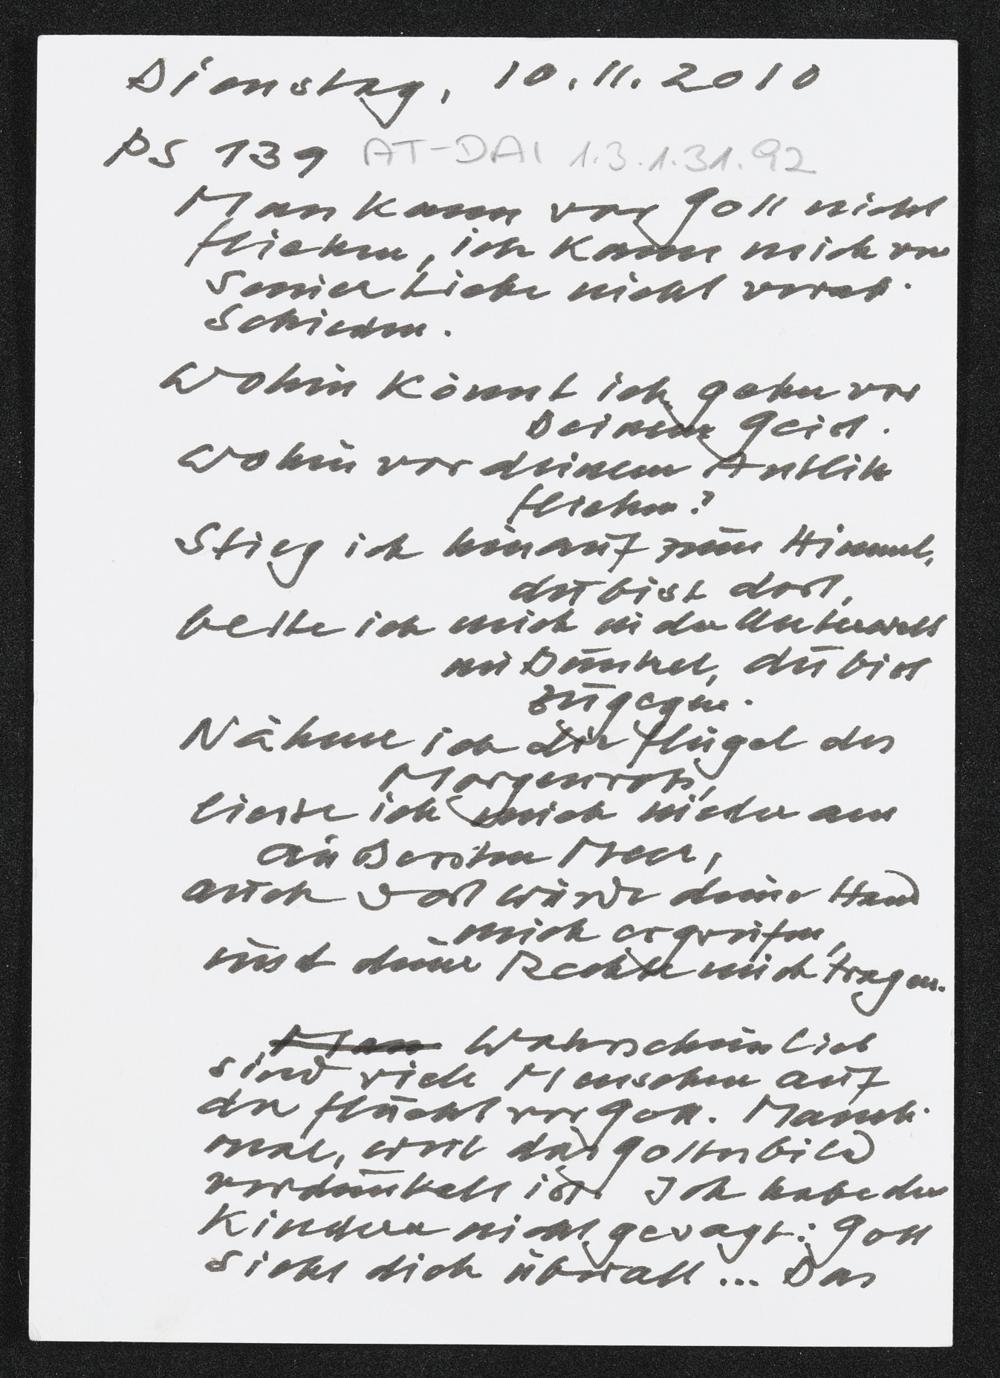 Dienstag, 10.11.2010
PS 139 AT-DAI 1.3.1.31.92
Man kann vor Gott nicht
fliehen, ich kann mich von
seiner Liebe nicht verab-
schieden.
Wohin könnt ich gehen vor
Deinem Geist.
Wohin vor deinem Antlitz
fliehen?
Stieg ich hinauf zum Himmel,
du bist dort,
bette ich mich in der Unterwelt
im Dunkel, du bist
zugegen.
Nähme ich die Flügel des
Morgenrots,
ließe ich mich nieder am
äußersten Meer,
auch dort würde deine Hand
mich ergreifen,
und deine Rechte mich tragen.
Man Wahrscheinlich
sind viele Menschen auf
der Flucht vor Gott. Manch-
mal, weil das Gottesbild
verdunkelt ist. Ich habe den
Kindern nicht gesagt: Gott
sieht dich überall ... Das